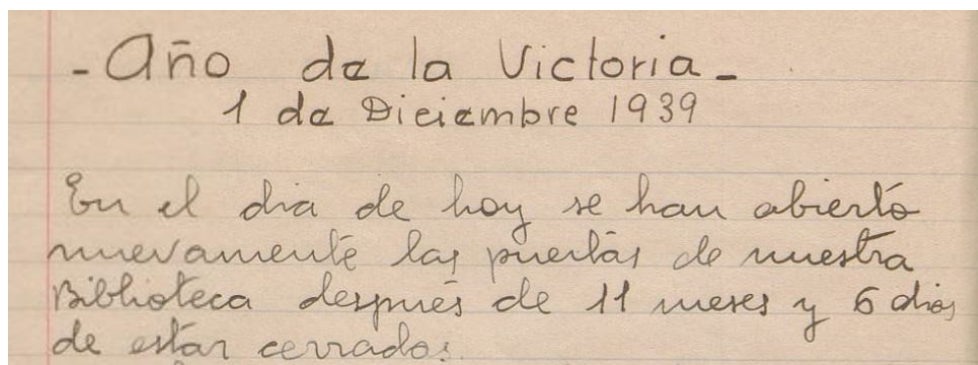 - Año de la Victoria -
1 de Diciembre 1939
En el dia de hoy se han abierto
nuevamente las puertas de nuestra
Biblioteca después de 11 meses y 6 dias
de estar cerrados.